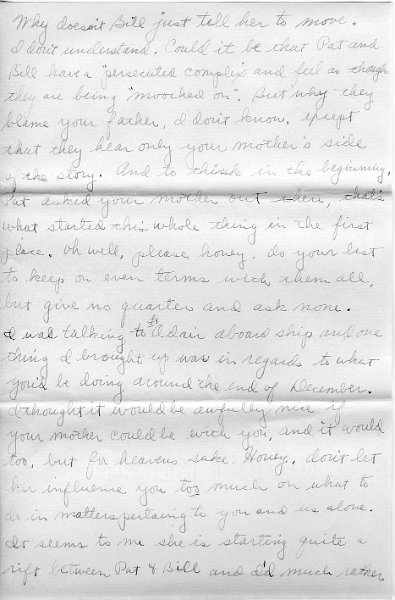 Why doesn't Bill just tell her to move.
I don't understand. Could it be that Pat and
Bill have a "persecuted complex" and feel as though
they are being "mooched on". But why they
blame your father, I don't know, except
that they hear only your mother's side
of the story. And to think in the beginning,
Pat asked your mother out there, that's
what started this whole thing in the first
place. Oh well, please honey, do your best
to keep on even terms with them all,
but give no quarter and ask none.
I was talking to Adair aboard ship and one
thing I brought up was in regards to what
you'd be doing around the end of December.
I thought it would be awfully nice if
your mother could be with you, and it would
too, but for heavens sake Honey, don't let
her influence you too much on what to
do in matters pertaining to you and us alone.
It seems to me she is starting quite a
rift between Pat & Bill and I'd much rather